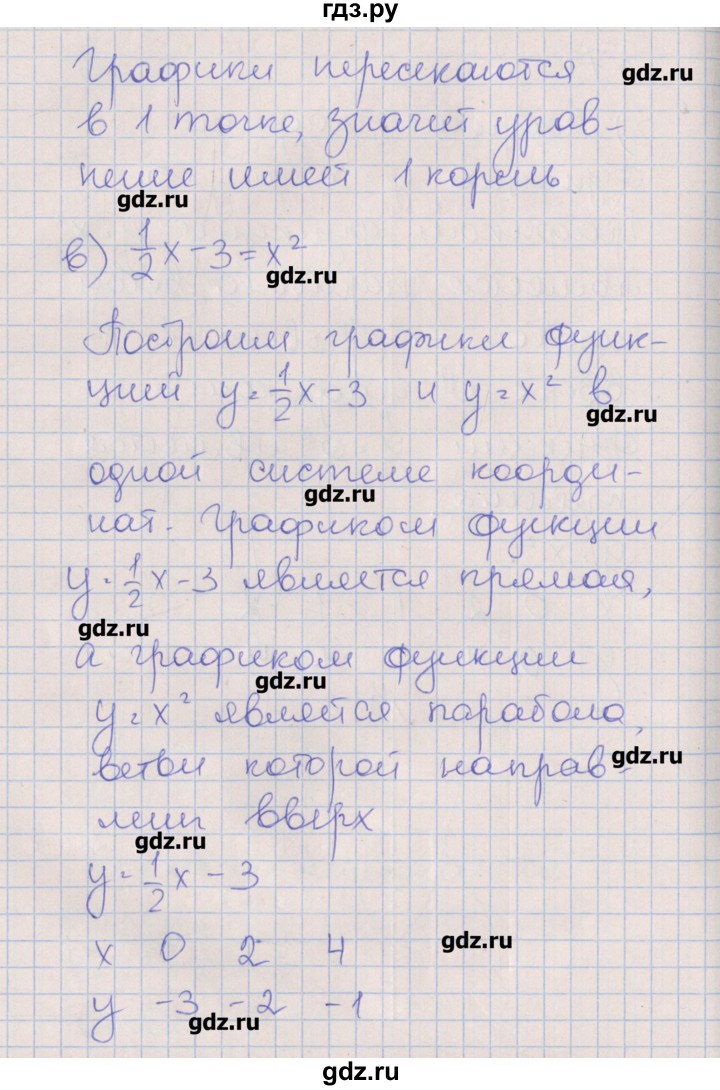 гдз.ру
Графики пересекаются
gdz.ru
в 1 точке, значит урав-
нение имеет 1 корень
gdz.ru
в) 1/2 x - 3 = x²
gdz.ru
Построим графики функ-
ций y = 1/2 x - 3 и y = x² в
gdz.ru
одной системе коорди-
gdz.ru
нат. Графиком функции
y = 1/2 x - 3 является прямая,
gdz.ru
а графиком функции
gdz.ru
y = x² является парабола,
ветви которой направ-
gdz.ru
лены вверх
gdz.ru
y = 1/2 x - 3
x 0 2 4
gdz.ru
y -3 -2 -1
gdz.ru
gdz.ru